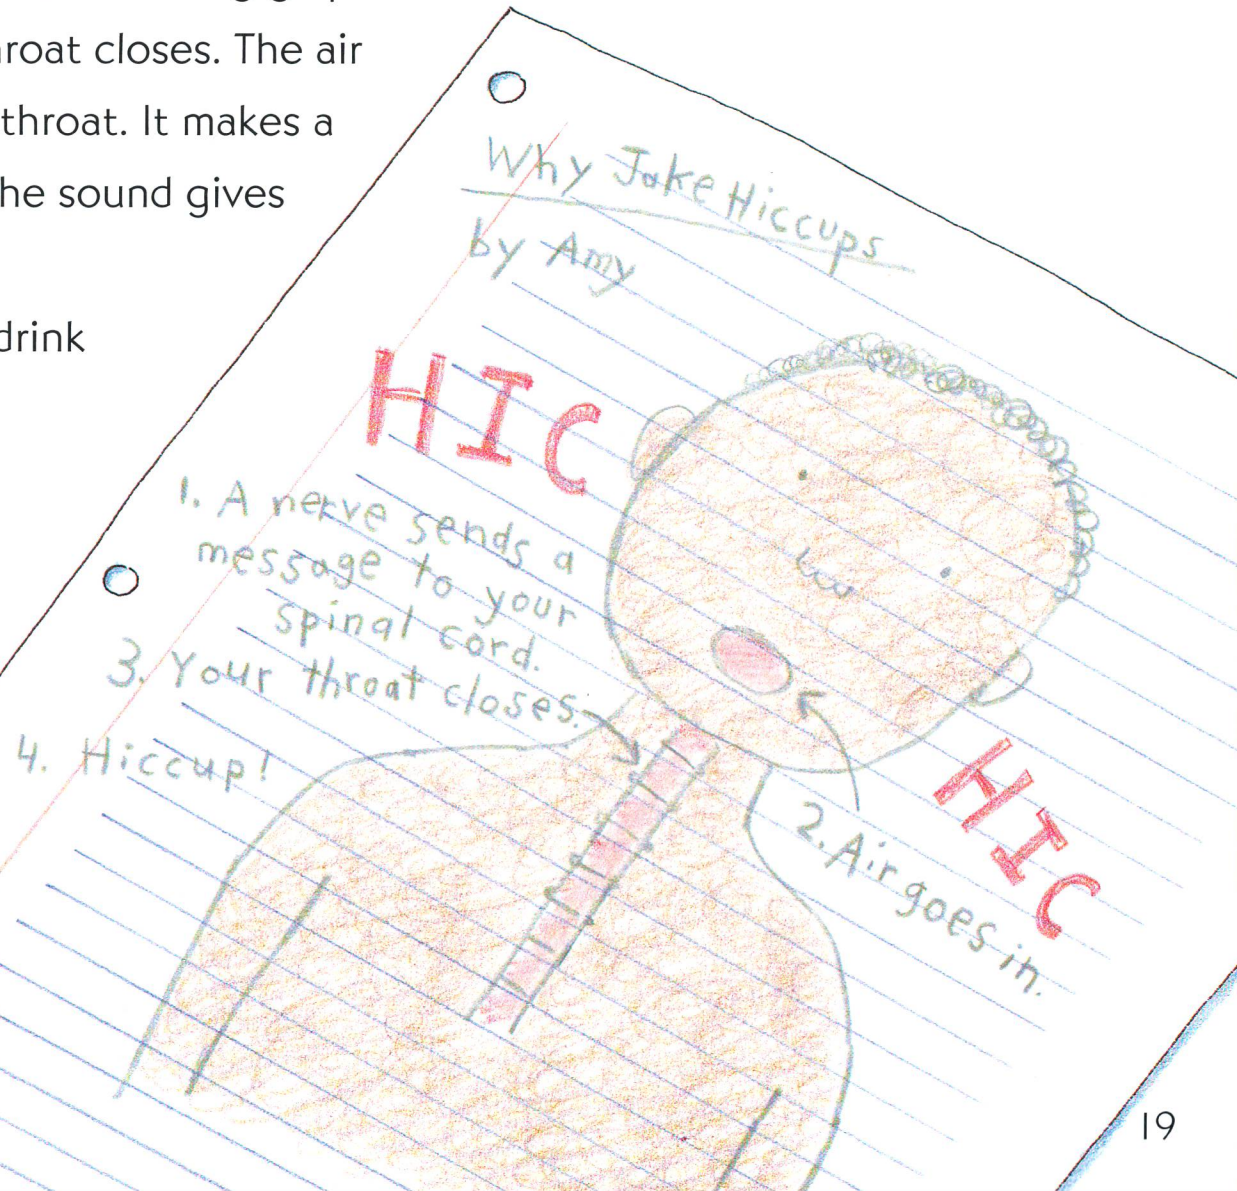 roat closes. The air
throat. It makes a
he sound gives
drink
Why Jake Hiccups
by Amy
HIC
1. A nerve sends a
message to your
spinal cord.
3. Your throat closes.
4. Hiccup!
2. Air goes in.
HIC
19